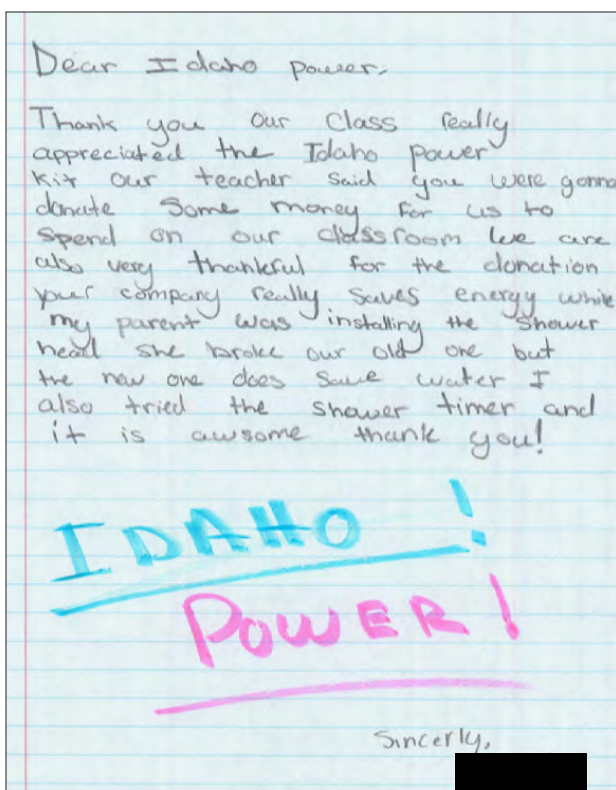 Dear Idaho power,
Thank you our Class really
appreciated the Idaho power
kit our teacher said you were gonna
donate Some money for us to
spend on our classroom we are
also very thankful for the donation
your company really saves energy while
my parent was installing the shower
head she broke our old one but
the new one does save water I
also tried the shower timer and
it is awsome thank you!
IDAHO !
POWER!
Sincerly,